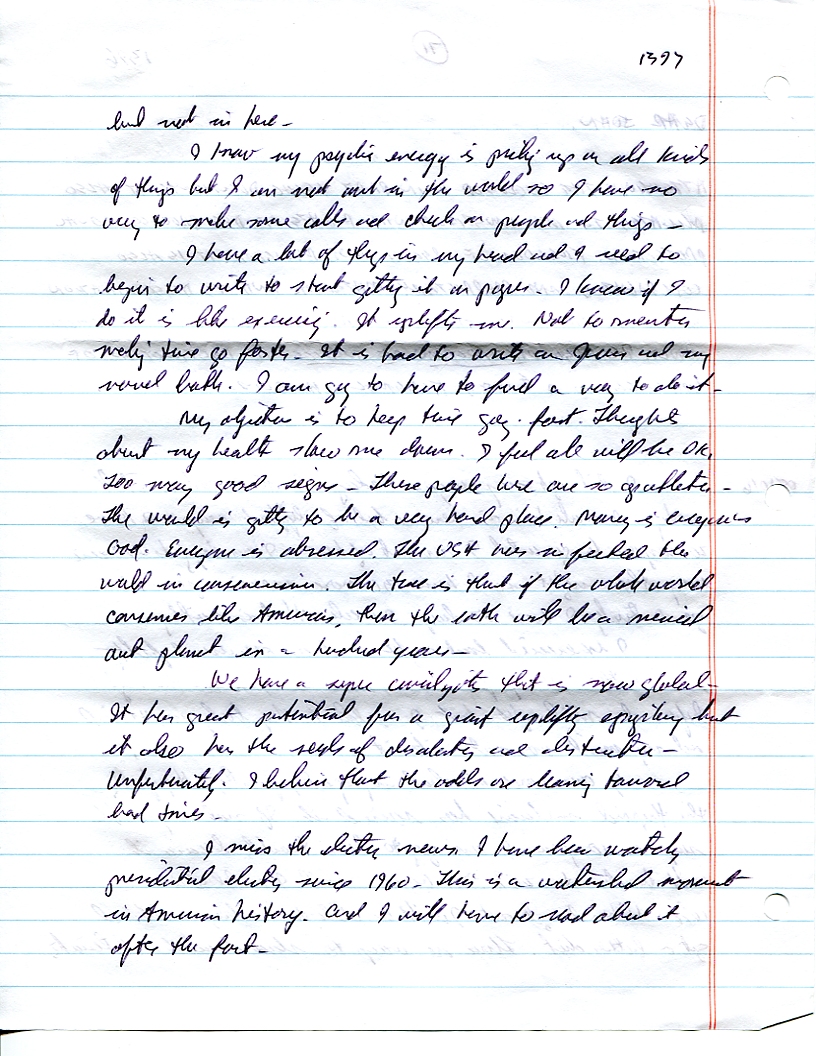 1397
but not in here -
I know my psychic energy is picking up on all kinds
of things but I am not out in the world so I have no
way to make some calls and check on people and things -
I have a lot of things in my head and I need to
begin to write to start getting it on paper. I know if I
do it is like exercising. It uplifts me. Not to mention
making time go faster. It is hard to write on and my
novel both. I am going to have to find a way to do it -
My objective is to keep time going fast. Thoughts
about my health slow me down. I feel all will be OK,
too many good signs - These people here are so
The world is getting to be a very hard place. Money is everyone's
God. Everyone is obsessed. The USA has infected the
world in consumerism. The is that if the whole world
consumes like America, then the earth will be a mined
out planet in a hundred years -
We have a super civilization that is now global -
It has great potential for a giant uplifting but
it also has the seeds of and destruction -
Unfortunately. I believe that the odds are leaning toward
bad times -
I miss the election news. I have been watching
presidential elections since 1960 - This is a watershed moment
in American history. And I will have to read about it
after the fact -